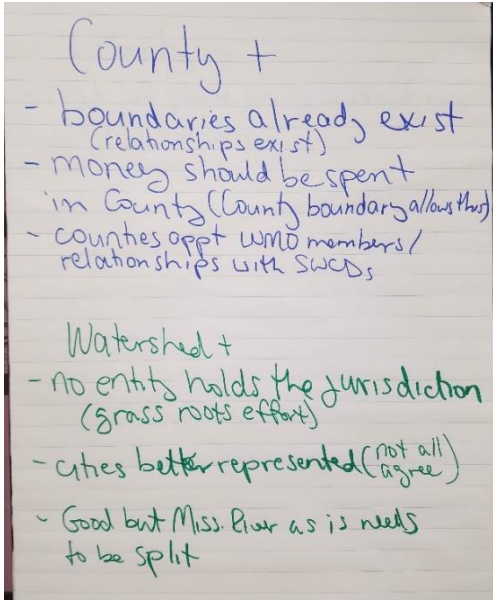 County +
- boundaries already exist
(relationships exist)
- money should be spent
in County (County boundary allows this)
- counties appt WMO members/
relationships with SWCDs
Watershed +
- no entity holds the jurisdiction
(grass roots effort)
- cities better represented (not all agree)
- Good but Miss. River as is needs
to be split